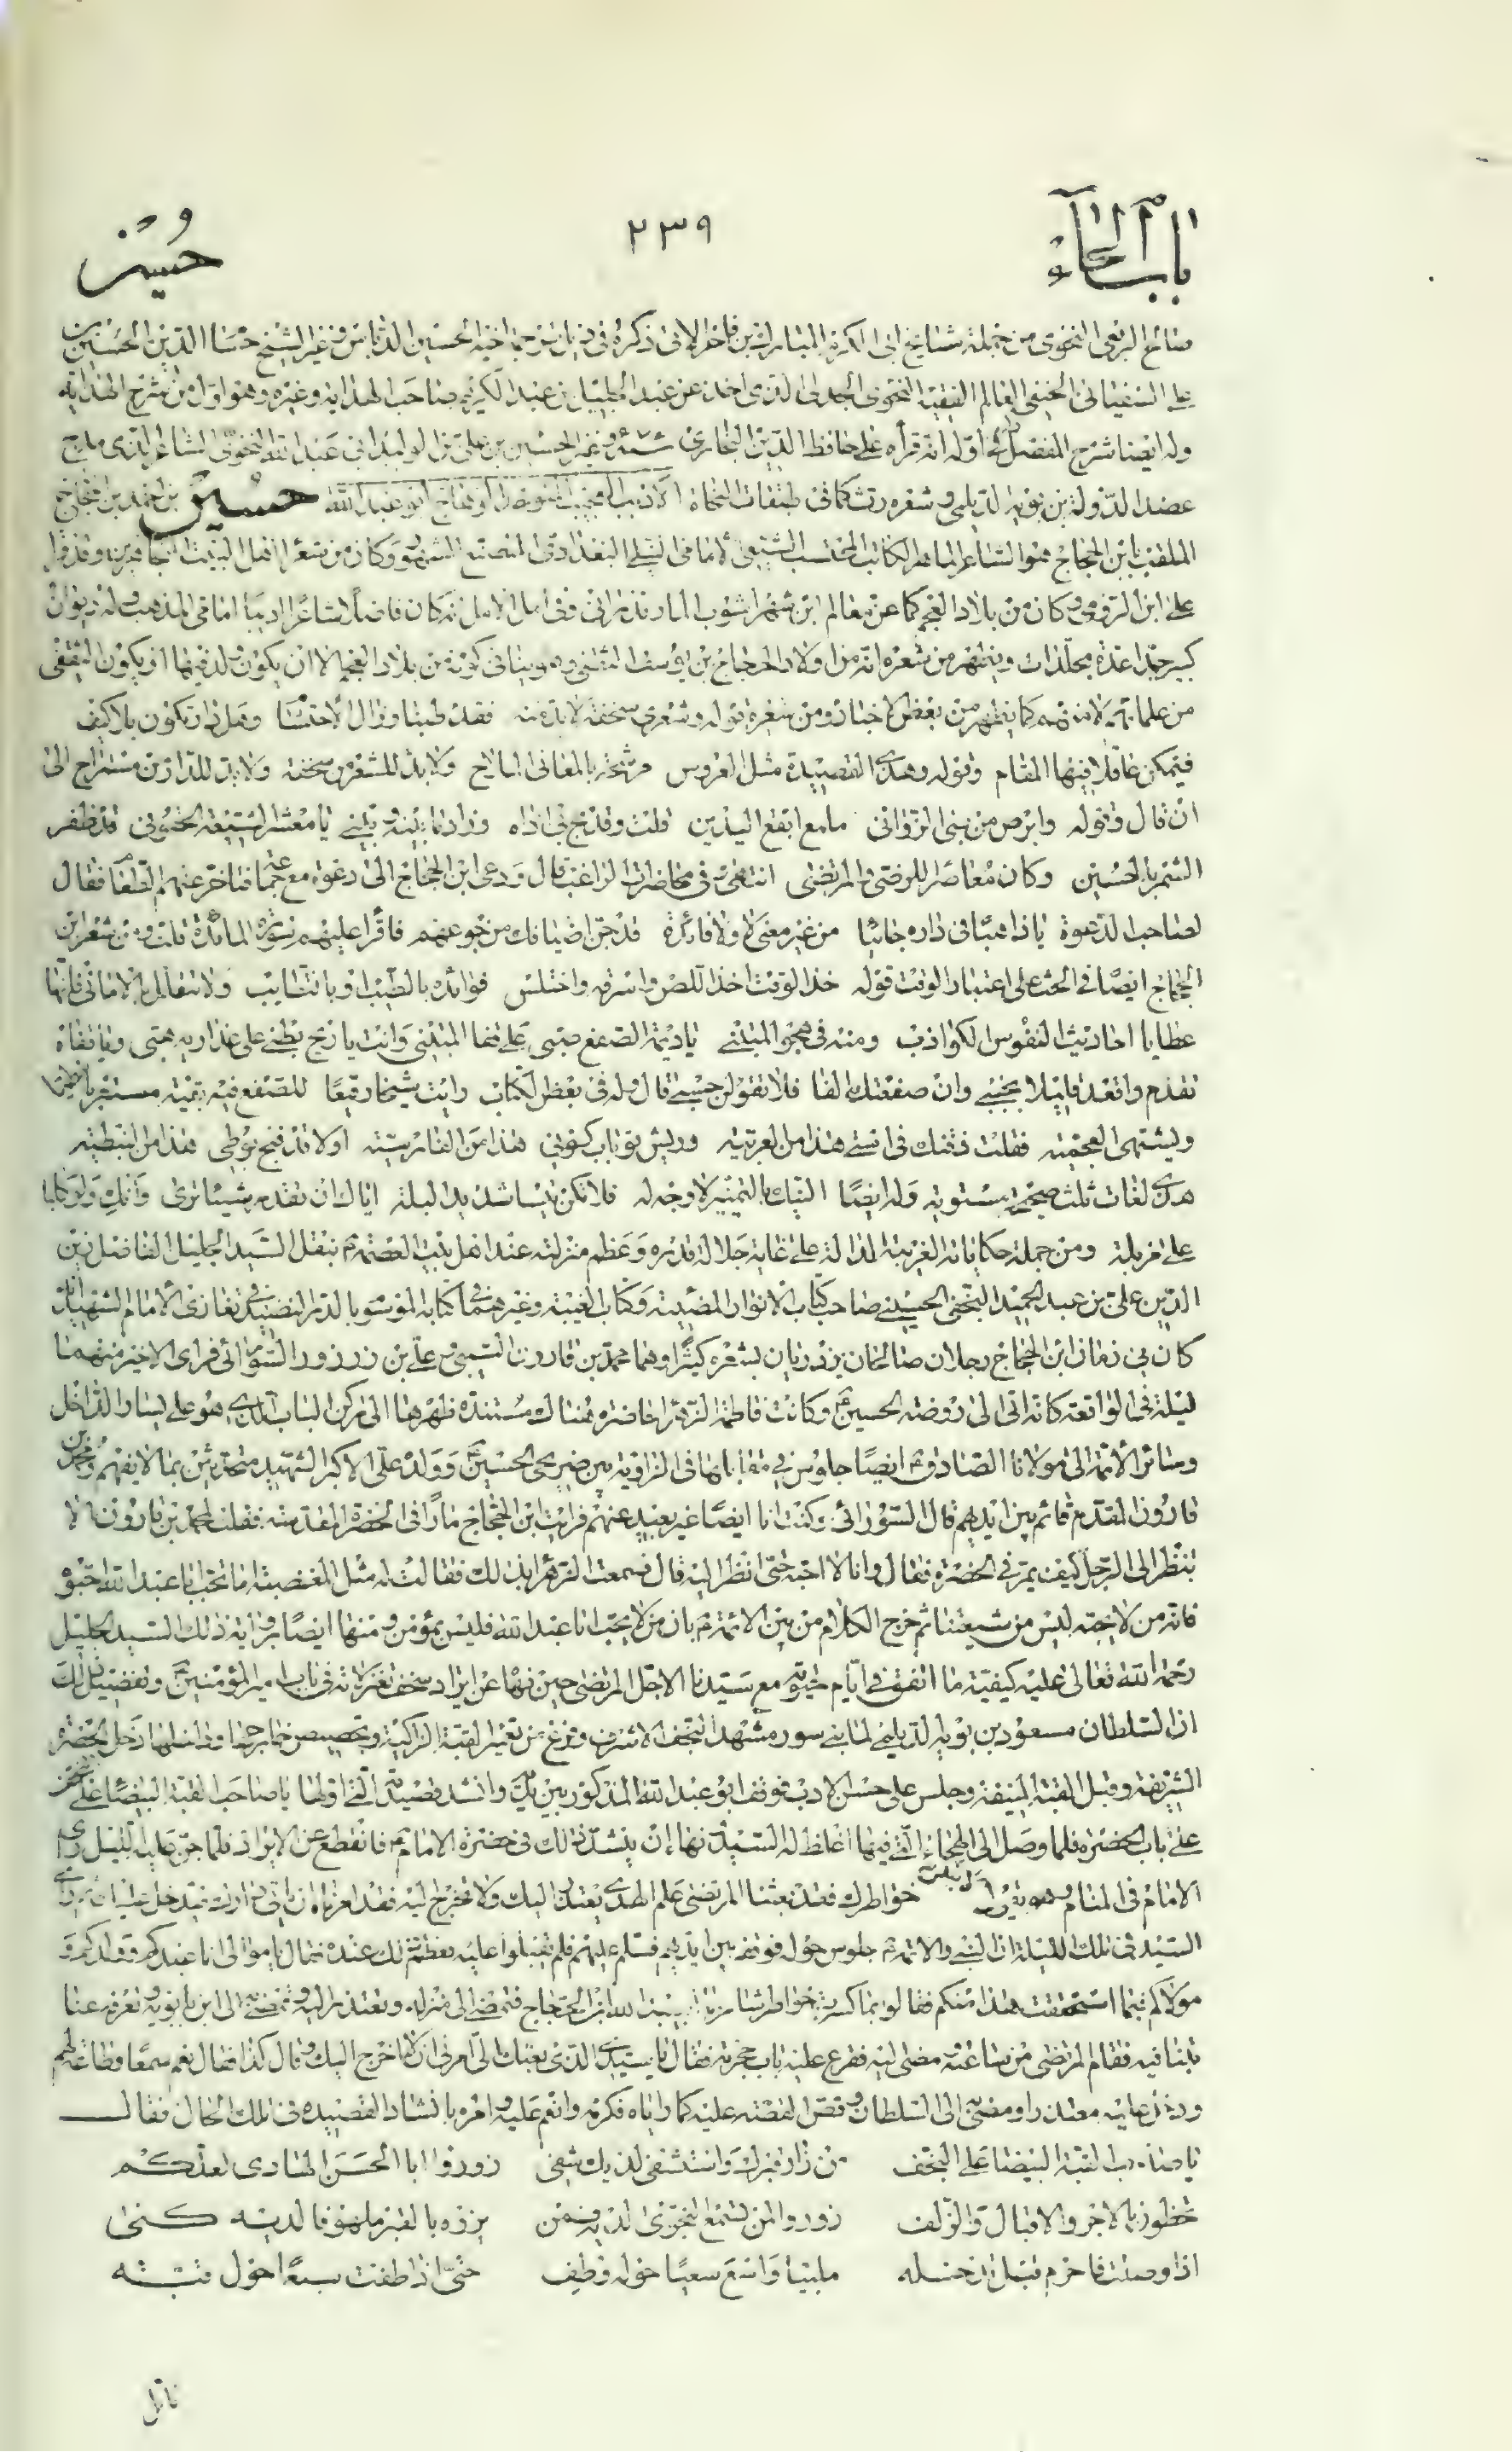 باب الحاء
٢٣٩
حسين
صائع الربعى النحوى من جملة مشايخ ابى الكرم المبارك بن فاخر الاتى ذكره فى ذيل ترجمة اخيه الحسين الدباس وغير الشيخ حسام الدين الحسين بن
على السغناقى الحنفى العالم الفقيه النحوى الجدلى الذى اخذ عن عبد الجليل بن عبد الكريم صاحب الهداية وغيره وهو اول من شرح الهداية
وله ايضا شرح المفصل اوله انه قرأه على حافظ الدين البخارى وغير الحسين بن على بن الوليد ابى عبد الله النحوى الشاعر الذى مدح
عضد الدولة بن بويه الديلمى وشعره كما فى طبقات النحاة الاديب العجيب ابو عبد الله حسين بن احمد بن الحجاج
الملقب بابن الحجاج هو الشاعر الماهر الكاتب المحتسب الشيعى الامامى النيلى البغدادى المشهور وكان من شعراء اهل البيت المجاهرين وقد قرأ
على ابن الرومى وكان من بلاد العجم كما عن معالم ابن شهراشوب المازندرانى وفى امل الامل انه كان فاضلا شاعرا اديبا امامى المذهب وله ديوان
كبير جدا عدة مجلدات ويظهر من شعره انه من اولاد الحجاج بن يوسف الثقفى وهو ينافى كونه من بلاد العجم الا ان يكون ولد فيها او يكون الثقفى
من علمائهم لا منهم كما يظهر من بعض الاخبار ومن شعره قوله وشعرى سخفه لا بد منه فقد طبنا وزال الاحتشام وهل دار تكون بلا كنيف
فيمكن عاقلا فيها المقام وقوله وهذى القصيدة مثل العروس موشحة بالمعانى الملاح ولا بد للشعر من سخفه ولا بد للدار من مستراح الى
ان قال وقوله وابرص من بنى الزوانى ملمع ابقع اليدين قلت وقد لج بى اذاه وزاد ما بينه وبينى يا معشر الشيعة الحقونى قد ظفر
الشمر بالحسين وكان معاصرا للرضى والمرتضى انتهى وفى محاضرات الراغب قال ودعى ابن الحجاج الى دعوة مع جماعة فتاخر عنهم الطعام فقال
لصاحب الدعوة يا ذاهبا فى داره جائيا من غير معنى لا ولا فائدة قد جن اضيافك من جوعهم فاقرأ عليهم سورة المائدة قلت ومن شعر ابن
الحجاج ايضا فى الحث على اعتبار الوقت قوله خذ الوقت اخذ اللص واسرقه واختلس فوائده بالطيب او بالتطايب ولا تتعلل بالامانى فانها
عطايا احاديث النفوس الكواذب ومنه فى هجو المتنبى يا ديمة الصفع صبى على قفا المتنبى وانت يا ريح بطنى على عذاريه هبى ويا قفاه
تقدم واقعد قليلا بجنبى وان صفعتك الفا فلا تقولن حسبى قال وله فى بعض الكتاب رايت شيخا رقيعا للصفع فيه بقية مستعربا
ويشتهى العجمية فقلت ذقنك فى استى هذا من العربية وريش بو باب كونى هذا من الفارسية اولا قد قبح بوطى هذا من النبطية
هذى لغات ثلث صحيحة مستوية وله ايضا التيك بالتمييز لا وجه له فلا تكن تيسا شديد البله اياك ان تقذر شيئا ترى وانك ولو كلبا
على مزبلة ومن جملة حكاياته الغريبة الدالة على غاية جلالة قدره وعظم منزلته عند اهل بيت العصمة بنقل السيد الجليل الفاضل زين
الدين على بن عبد الحميد النجفى الحسينى صاحب كتاب الانوار المضيئة وكتاب الغيبة وغيرهما فى كتابه الموسوم بالدر النضيد فى تعازى الامام الشهيد انه
كان فى زمان ابن الحجاج رجلان صالحان يزدريان بشعره كثيرا وهما محمد بن قارون السيبى وعلى بن زرزور السورائى فراى الاخير منهما
ليلة فى الواقعة كانه اتى الى روضة الحسين ع وكانت فاطمة الزهراء حاضرة هناك مستندة ظهرها الى ركن الباب الذى هو على يسار الداخل
وسائر الائمة الى مولانا الصادق ع ايضا جلوس فى مقابلها فى الزاوية بين ضريحى الحسين ع وولده على الاكبر الشهيد متحدثين بما لا يفهم ومحمد بن
قارون المقدم قائم بين ايديهم قال السورائى وكنت انا ايضا غير بعيد عنهم فرايت ابن الحجاج مارا فى الحضرة المقدسة فقلت لمحمد بن قارون الا
تنظر الى الرجل كيف يمر فى الحضرة فقال وانا لا احبه حتى انظر اليه قال فسمعت الزهراء بذلك فقالت له مثل المغضبة اما تحب ابا عبد الله احبوه
فانه من لا يحبه ليس من شيعتنا ثم خرج الكلام من بين الائمة ع بان من لا يحب ابا عبد الله فليس بمؤمن ومنها ايضا برواية ذلك السيد الجليل
رحمة الله تعالى عليه كيفية ما اتفق فى ايام حيوته مع سيدنا الاجل المرتضى حين نهاه عن ايراد سخف تغزلاته فى باب امير المؤمنين ع وتفصيل ذلك
ان السلطان مسعود بن بويه الديلمى لما بنى سور مشهد النجف الاشرف وفرغ من تعمير القبة الزاكية وتجصيص خارجها وداخلها دخل الحضرة
الشريفة وقبل القبة المنيفة وجلس على حسن الادب فوقف ابو عبد الله المذكور بين يديه وانشد قصيدته التى اولها يا صاحب القبة البيضاء على النجف
على باب الحضرة فلما وصل الى الهجاء التى فيها اغلظ له السيد ونهاه ان ينشد ذلك فى حضرة الامام ع فانقطع عن الايراد فلما جن عليه الليل راى
الامام فى المنام وهو يقول لا ينكسر خواطرك فقد بعثنا المرتضى علم الهدى يعتذر اليك ولا تخرج اليه فقد امرناه ان ياتى دارك فيدخل عليك ثم راى
السيد فى تلك الليلة ان النبى والائمة ع جلوس حوله فوقف بين ايديهم فسلم عليهم فلم يقبلوا عليه فعظم ذلك عنده فقال يا موالى انا عبدكم وولدكم و
مولاكم فبما استحققت هذا منكم فقالوا بما كسرت خواطر شاعرنا ابى عبد الله ابن الحجاج فتمضى الى منزله وتعتذر اليه وتمضى به الى ابن بابويه وتعرفه عنا
يتنا فيه فقام المرتضى من ساعته ومضى اليه فقرع عليه باب حجرته فقال يا سيدى الذى بعثك الى امرنى ان لا اخرج اليك وقال كذا فقال نعم سمعا وطاعة لهم
ودخل عليه معتذرا ومضى به الى السلطان وقص القصة عليه كما راياه فكرمه وانعم عليه وامره بانشاد القصيدة فى تلك الحال فقال
يا صاحب القبة البيضاء على النجف من زار قبرك واستشفى لديك شفى زوروا ابا الحسن الهادى لعلكم
تحظون بالاجر والاقبال والزلف زوروا لمن تسمع النجوى لديه فمن يزره بالقبر ملهوفا لديه كفى
اذا وصلت فاحرم قبل تدخله ملبيا واسع سعيا حوله وطف حتى اذا طفت سبعا حول قبته
تامل